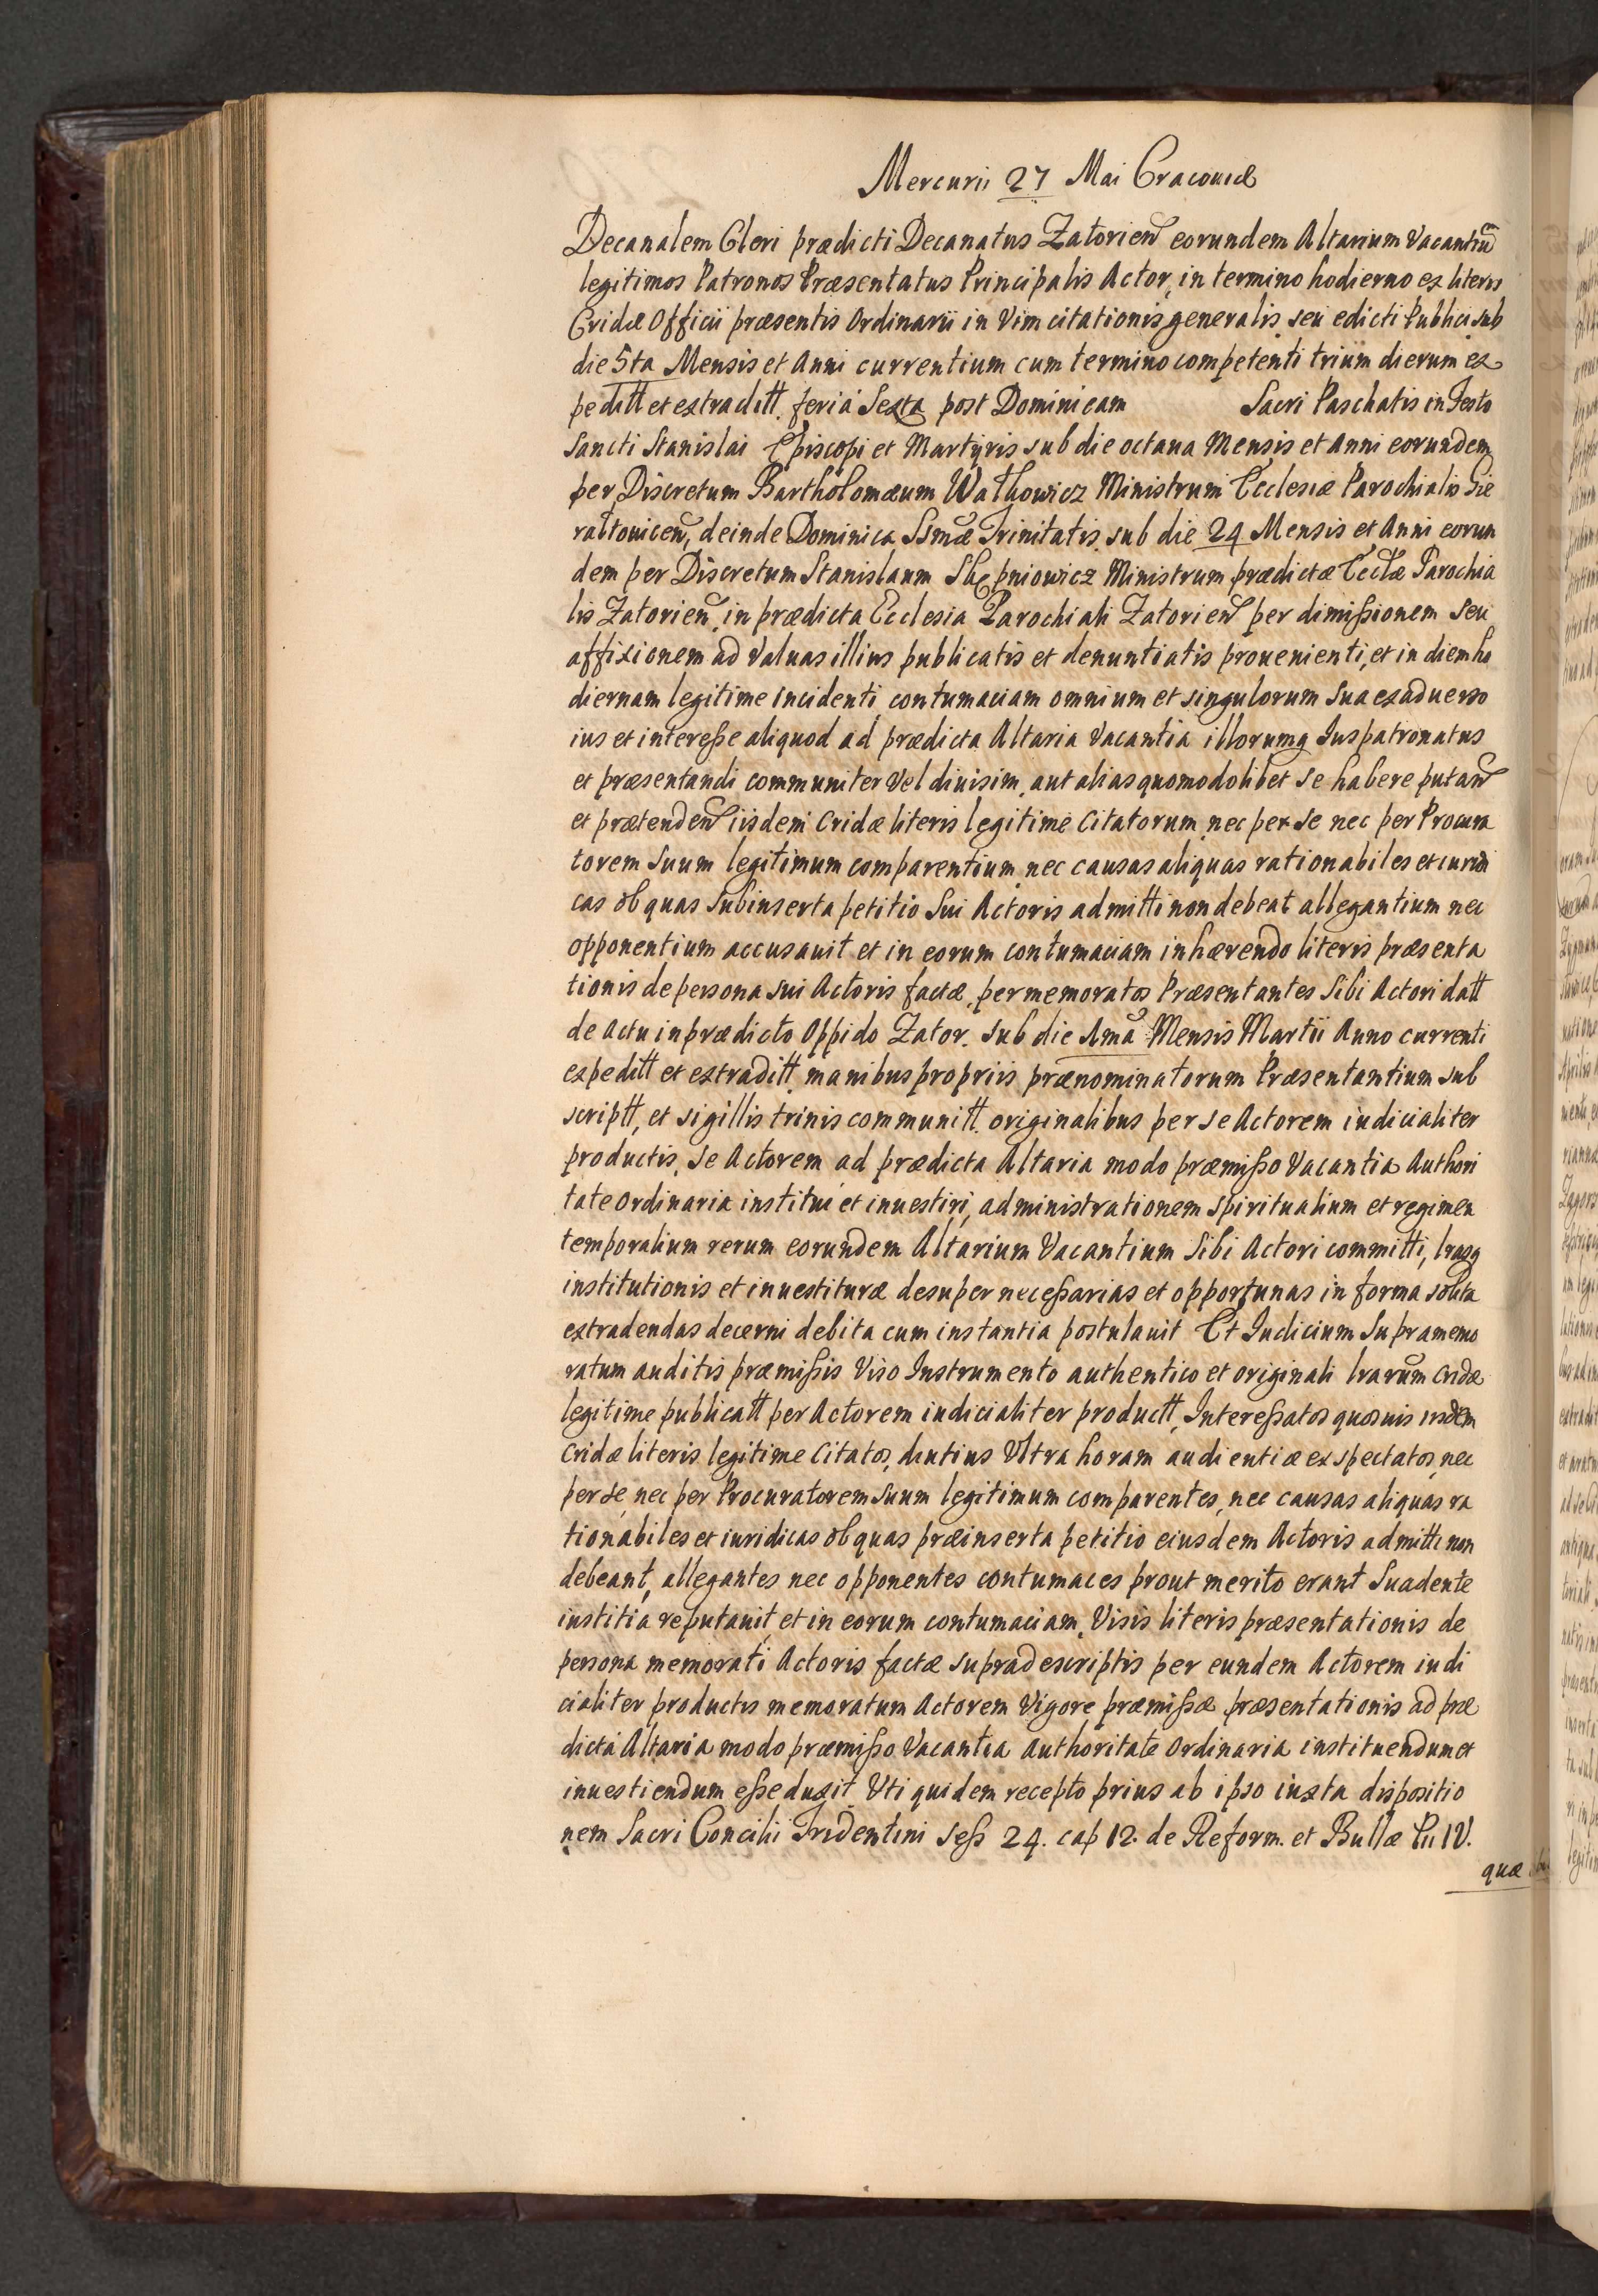 Mercurii 27 Mai Cracouiæ
Decanalem Cleri prædicti Decanatus Zatorien eorundem Altarium Vacantiū
legitimos Patronos Præsentatus Principalis Actor, in termino hodierno ex literis
Cridæ Officii præsentis Ordinarii in Vim citationis generalis seu edicti Publici sub
die 5ta Mensis et Anni currentium cum termino competenti trium dierum ex
peditt et extraditt. feria Sexta post Dominicam Sacri Paschatis in Festo
Sancti Stanislai Episcopi et Martyris sub die octaua Mensis et Anni eorundem
per Discretum Bartholomæum Wathowicz Ministrum Ecclesiæ Parochialis Gie
raltouicen, deinde Dominica SSmæ Trinitatis sub die 24 Mensis et Anni eorun
dem per Discretum Stanislaum Skępniowicz Ministrum prædictæ Ecclæ Parochia
lis Zatorien, in prædicta Ecclesia Parochiali Zatorien per dimißionem seu
affixionem ad Valuas illius publicatis et denuntiatis prouenienti, et in diem ho
diernam legitime incidenti contumaciam omnium et singulorum sua ex aduerso
ius et intereße aliquod ad prædicta Altaria Vacantia illorumq Iuspatronatus
et præsentandi communiter Vel diuisim, aut alias quomodolibet se habere putan
et prætenden iisdem Cridæ literis legitime Citatorum, nec per se nec per Procura
torem Suum legitimum comparentium, nec causas aliquas rationabiles et iuridi
cas ob quas Subinserta petitio Sui Actoris admitti non debeat allegantium nec
opponentium accusauit et in eorum contumaciam inhærendo literis præsenta
tionis de persona sui Actoris factæ, per memoratos Præsentantes Sibi Actori datt
de Actu in prædicto Oppido Zator. sub die 1ma Mensis Martii Anno currenti
expeditt et extraditt, manibus propriis prænominatorum Præsentantium sub
scriptt, et sigillis trinis communitt. originalibus per se Actorem iudicialiter
productis, se Actorem ad prædicta Altaria modo præmißo Vacantia Authori
tate ordinaria institui et inuestiri, administrationem spiritualium et regimen
temporalium rerum eorundem Altarium Vacantium Sibi Actori committi, lrasq
institutionis et inuestituræ desuper neceßarias et opportunas in forma solita
extradendas decerni debita cum instantia postulauit Et Iudicium Supramemo
ratum auditis præmißis Viso Instrumento authentico et originali lrarum cridæ
legitime publicatt per Actorem iudicialiter productt, Intereßatos quosuis iisdem
cridæ literis legitime Citatos, diutius Vltra horam audientiæ exspectatos, nec
per se, nec per Procuratorem suum legitimum comparentes, nec causas aliquas ra
tionabiles et iuridicas ob quas præinserta petitio eiusdem Actoris admitti non
debeant, allegantes nec opponentes contumaces prout merito erant Suadente
iustitia reputauit, et in eorum contumaciam, Visis literis præsentationis de
persona memorati Actoris factæ supradescriptis per eundem Actorem iudi
cialiter productis memoratum Actorem Vigore præmißæ præsentationis ad præ
dicta Altaria modo præmißo Vacantia Authoritate Ordinaria instituendum et
inuestiendum eße duxit Vti quidem recepto prius ab ipso iuxta dispositio
nem Sacri Concilii Tridentini Seß 24. cap 12. de Reform. et Bullæ Pii IV.
quæ